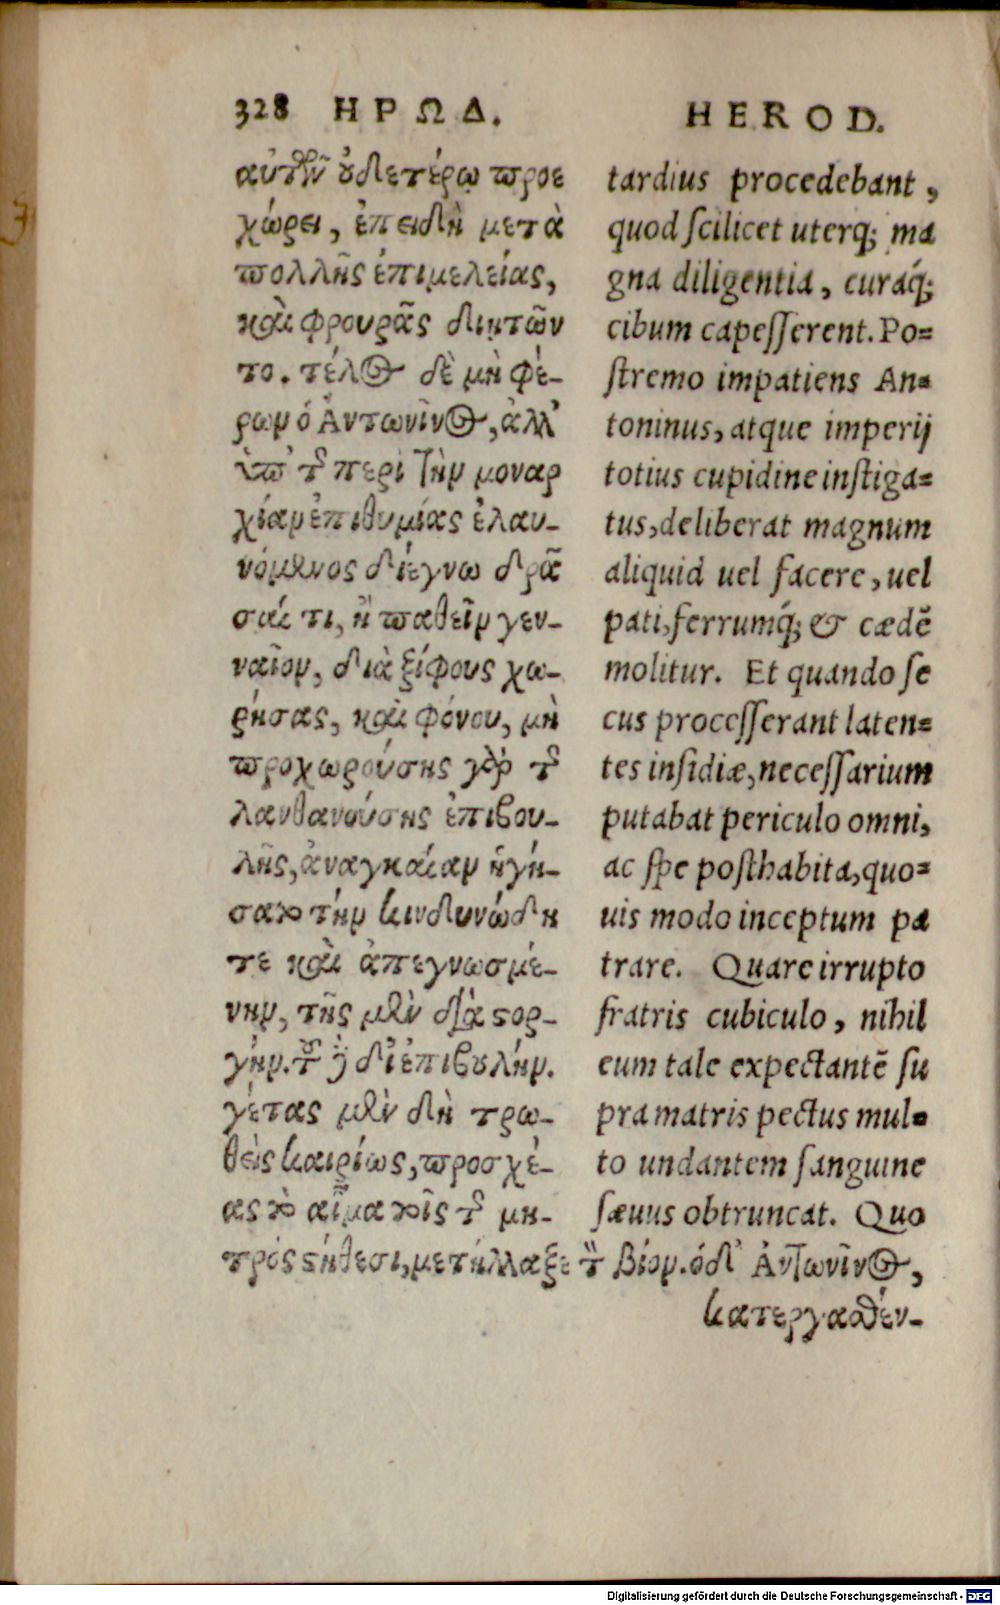 328 ΗΡΩΔ.
αὐτῶν οὐδετέρῳ προε
χώρει, ἐπειδὴ μετὰ
πολλῆς ἐπιμελείας,
καὶ φρουρᾶς διητῶν
το. τέλος δὲ μὴ φέ-
ρων ὁ Ἀντωνῖνος, ἀλλ'
ὑπὸ τῆς περὶ τὴν μοναρ
χίαν ἐπιθυμίας ἐλαυ-
νόμενος διέγνω δρᾶ
σαί τι, ἢ παθεῖν γεν-
ναῖον, διὰ ξίφους χω-
ρήσας, καὶ φόνου, μὴ
προχωρούσης γὰρ τῆς
λανθανούσης ἐπιβου-
λῆς, ἀναγκαίαν ἡγή-
σατο τὴν κινδυνώδη
τε καὶ ἀπεγνωσμέ-
νην, τῆς μὲν διὰ στορ-
γήν. τοῦ δὲ δι' ἐπιβουλήν.
γέτας μὲν δὴ τρω-
θεὶς καιρίως, προσχέ-
ας τὸ αἷμα τοῖς τῆς μη-
τρός στήθεσι, μετήλλαξε τὸν βίον. ὁ δ' Ἀντωνῖνος,
κατεργασθέν-
HEROD.
tardius procedebant,
quod ſcilicet uterq; ma
gna diligentia, curáq;
cibum capeſſerent. Po=
ſtremo impatiens An=
toninus, atque imperij
totius cupidine inſtiga=
tus, deliberat magnum
aliquid uel facere, uel
pati, ferrumq́; & cædẽ
molitur. Et quando ſe
cus proceſſerant laten=
tes inſidiæ, neceſſarium
putabat periculo omni,
ac ſpe poſthabita, quo=
uis modo inceptum pa
trare. Quare irrupto
fratris cubiculo, nihil
eum tale expectantẽ ſu
pra matris pectus mul=
to undantem ſanguine
ſæuus obtruncat. Quo
Digitalisierung gefördert durch die Deutsche Forschungsgemeinschaft - DFG